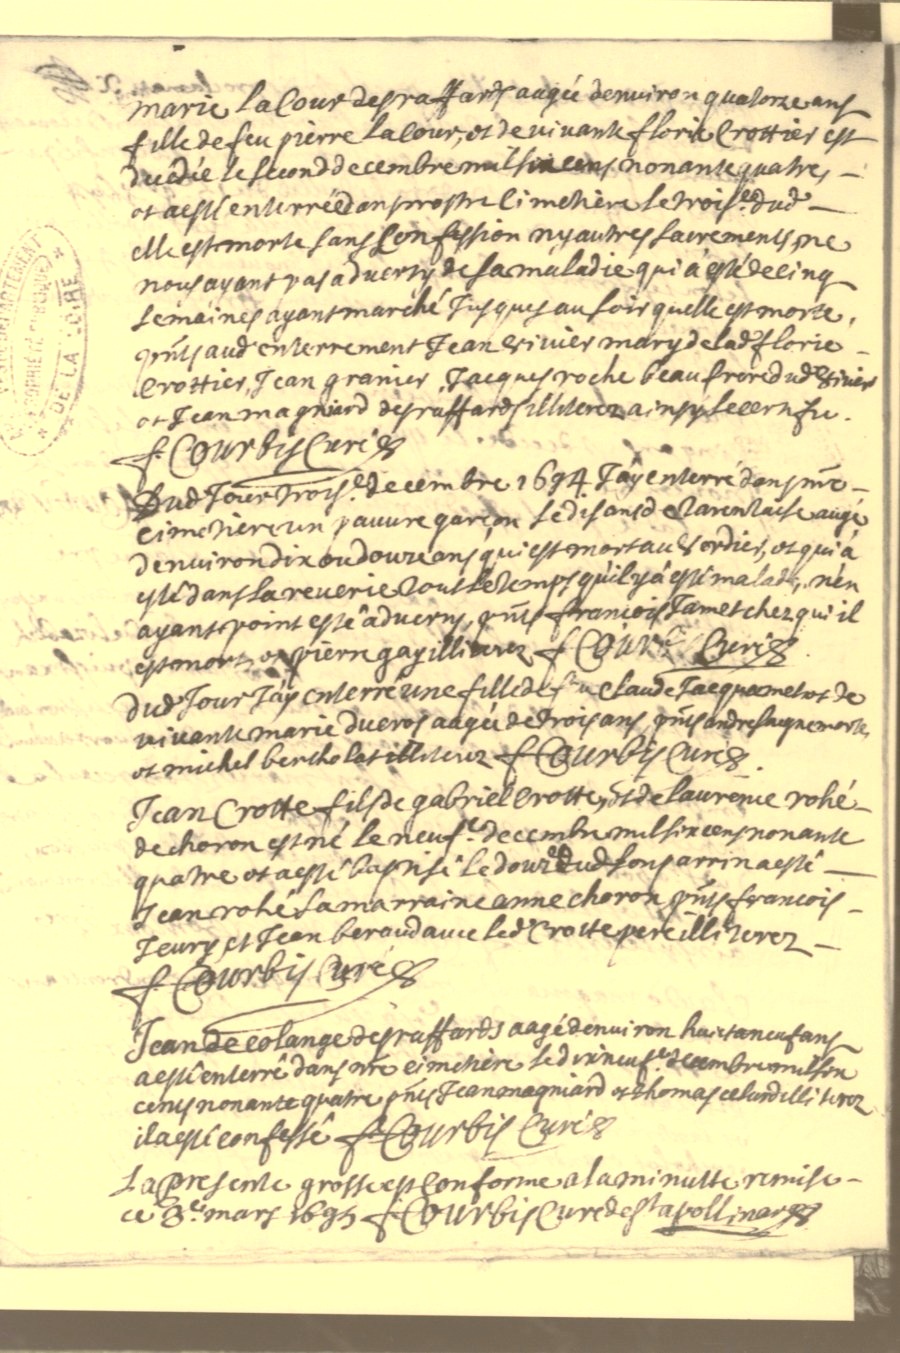 marie la Cour des raffards aagée denviron quatorze ans
fille de feu pierre la Cour, et de vivante florie Crottier est
decedée le second decembre mil six cens nonante quatre, –
et a esté enterrée dans nostre Cimetière le trois.e dud. –
elle est morte sans Confession ny autres sacrements, ne
nous ayant pas adverty de sa maladie qui a esté de cinq
semaines ayant marché Jusques au soir quelle est morte,
pnts aud. enterrement Jean vivier mary de lad. florie –
Crottier, Jean granier, Jacques roche beaufrere dud. vivier
et Jean magniard des raffards illiterez ainsy le certifie.
f Courbis Curé
Dud Jour trois.e decembre 1694 Jay enterré dans nre –
Cimetiere un pauvre garçon se disans de tarentaise aagé
denviron dix ou douze ans qui est mort au Verdier, et qui a
esté dans la reverie tout le temps quil y a esté malade, n'en
ayant point esté adverty, pnts francois Jamet chez qui il
est mort, et pierre gay illiterez f Courbis Curé
dud Jour Jay enterré une fille de feu Claude Jacquemet et de
vivante marie ducros aagée de trois ans pnts andre Jaquemet,
et michel bertholat illiterez f Courbis Curé.
Jean Crotte fils de gabriel Crotte, et de laurence rohé –
de choron est né le neuf.e decembre mil six cens nonante
quatre et a esté baptisé le douze dud son parrin a esté –
Jean rohé sa marraine anne choron pnts francois –
Jeury et Jean beraud avec led. Crotte pere illiterez –
f Courbis Curé
Jean de colange des raffards aagé denviron huict a neuf ans
a esté enterré dans nre cimetière le dixneuf.e decembre mil six
cens nonante quatre pnts Jean magniard et thomas celard illiterez
il a esté confessé f Courbis Curé
La presente grosse est Conforme a la minutte remise –
ce 3.e mars 1695 f Courbis Curé de St apollinard
DE LA LOIRE